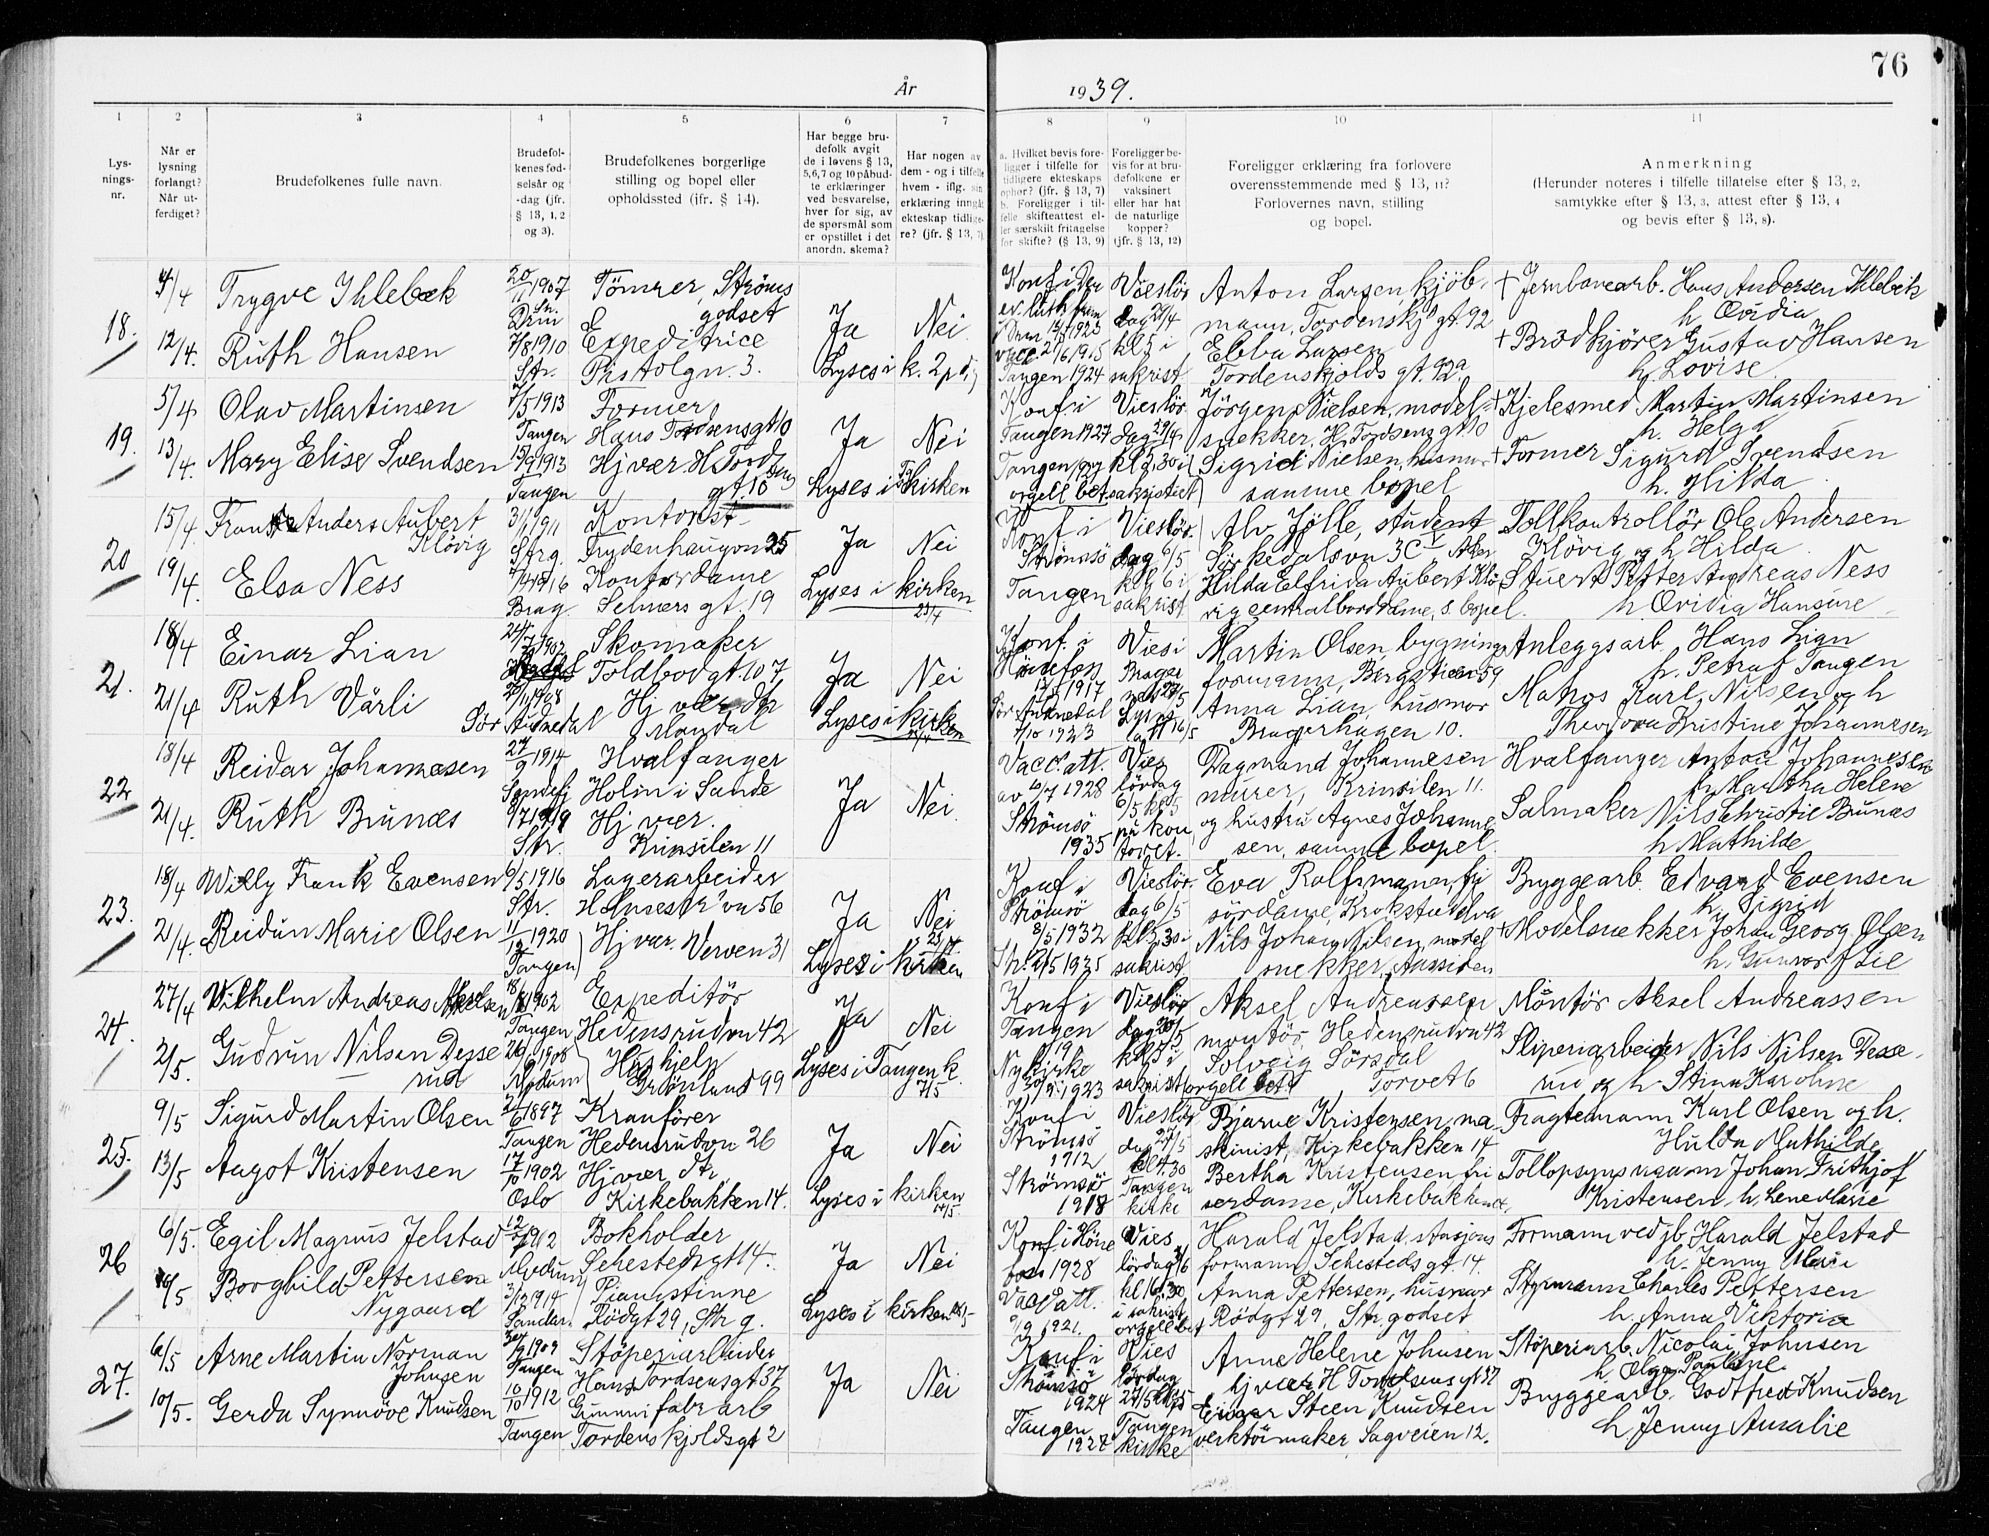 76
År 1939.
1
2
3
4
5
6
7
8
9
10
11
Lys-
nings-
nr.
Når er
lysning
forlangt?
Når ut-
ferdiget?
Brudefolkenes fulle navn.
Brudefol-
kenes fød-
selsår og
-dag (jfr.
§ 13, 1, 2
og 3).
Brudefolkenes borgerlige
stilling og bopel eller
opholdssted (jfr. § 14).
Har begge bru-
defolk avgit
de i lovens § 13,
5, 6, 7 og 10 påbud-
te erklæringer
ved besvarelse,
hver for sig, av
de spørsmål som
er opstillet i det
anordn. skema?
Har nogen av
dem - og i tilfelle
hvem - iflg. sin
erklæring inngåt
ekteskap tidlige-
re? (jfr. § 13, 7)
a. Hvilket bevis fore-
ligger i tilfelle for
tidligere ekteskaps
ophør? (jfr. § 13, 7)
b. Foreligger i til-
felle skifteattest el-
ler særskilt fritagelse
for skifte? (§ 13, 9)
Foreligger be-
vis for at bru-
defolkene er
vaksinert
eller har hat
de naturlige
kopper?
(jfr. § 13, 12)
Foreligger erklæring fra forlovere
overensstemmende med § 13, 11?
Forlovernes navn, stilling
og bopel.
Anmerkning
(Herunder noteres i tilfelle tillatelse efter § 13, 2,
samtykke efter § 13, 3, attest efter § 13, 4
og bevis efter § 13, 8).
18.
4/4
12/4.
Trygve Ihlebæk
Ruth Hansen
20/11 1907
7/8 1910
Str.
Tömrer, Ströms
godset
Expeditrice
Pistolgn. 3.
Ja
Nei
Lyses i k.
Tangen 1924
Vieslör
kl 5 i
sakrist
Anton Larsen, kjöb
mann, Tordenskj. gt. 92
Ebba Larsen
Tordenskjolds gt. 92a
+ Jernbanearb. Hans Andersen Ihlebæk
h. Ovidia
+ Brödkjörer Gustav Hansen
h. Lovise
19.
5/4
13/4.
Olav Martinsen
Mary Elise Svendsen
/5 1913
Tangen
15/9 1913
Tangen
Former
Hans Tordsensgt 10
Hj vær H Tord
gt. 10
Ja
Nei
Lyses i kirken
Konf i
Tangen 1927
orgell bet.
Vieslör
dag 29/4
kl 5,30 i
sakristiet
Jörgen Nielsen, model-
snekker, H. Tordsens gt 10
Sigrid Nielsen, husmor
samme bopel
+ Kjelesmed Martin Martinsen
h. Helga
+ Former Sigurd Svendsen
h. Hilda
20
15/4.
19/4.
Frantz Anders Aubert
Klövig
Elsa Ness
3/1 1911
Strg.
1916
Brag.
Kontorist
Frydenhaugvn 25
Kontordame
Selmers gt. 19
Ja
Nei
Lyses i kirken
23/4
Konf i
Strömsö
Tangen
Vieslör
dag 6/5
kl 6 i
sakrist
Alv Jölle, student
Sörkedalsvn 3C V. Aker
Hilda Elfrida Aubert Klö-
vig centralborddame, s. bopel.
Tollkontrollör Ole Andersen
Klövig og h Hilda
Stuert Petter Andreas Ness
h Ovidia Hansine
21.
18/4
21/4
Einar Lian
Ruth Vårli
24/7 1902
1908
Sör Audnedal
Skomaker
Toldbodgt. 107
Hj vær.
Mandal
Ja
Nei
Lyses i kirken
Konf. i
1917
Sör Audnedal
/10 1923
Vies i
Brager
Lysn
att 16/5
Martin Olsen bygnings
formann, Bergstien 59
Anna Lian, husmor
Bragerhagen 10.
Anleggsarb. Hans Lian
h. Petra f Tangen
Matros Karl Nilsen og h
Theodora Kristine Johannesen
22
18/4
21/4.
Reidar Johannesen
Ruth Brunæs
27/9 1914
Sandefj
1919
Str.
Hvalfanger
Holm i Sande
Hj vær.
Krinsilen 11
Ja
Nei.
Vacc. att.
av 10/7 1928
Strömsö
1935
Vies
lördag
6/5 kl 5
på kon
toret.
Dagmand Johannesen
murer, Krinsilen 11.
og hustru Agnes Johanne
sen, samme bopel.
Hvalfanger Anton Johannesen
h. Martha Helene
Salmaker Nils Christie Brunæs
h Mathilde
23.
18/4
21/4.
Willy Frank Evensen
Reidun Marie Olsen
6/5 1916
Str.
11/12 1920
Tangen
Lagerarbeider
vn 56
Hj vær. Verven 31
Ja
Nei
Lyses i kirken
23/4
Konf i
Strömsö
8/5 1932
/5 1935
Vieslör.
dag 6/5
kl 5,30 i
sakrist
Eva Rolfsmann, fri
sördame, Krokstadelva
Nils Johan Nilsen, model
snekker, Aassiden
Bryggearb. Edvard Evensen
h. Sigrid
+ Modelsnekker Johan Georg Olsen
h. Gunvor f Lie
24.
27/4
2/5.
Vilhelm Andreas
Gudrun Nilsen Desse
rud
1902
Tangen
1908
Modum
Expeditör
Hedensrudvn 42
Hushjelp
Grönland 99
Ja
Nei
Lyses i Tangen k.
7/5
Konf i
Tangen
Nykirke
1923
Vieslör
dag 20/5
kl 5 i
sakrist
orgell bet
Aksel Andreassen
montör, Hedensrudvn 42
Solveig Sörsdal
Torvet 6
Montör Aksel Andreassen
Sliperiarbeider Nils Nilsen Desse-
rud og h Stina Karoline
25.
9/5
13/5
Sigurd Martin Olsen
Aagot Kristensen
1897
Tangen
17/10 1902
Oslo
Kranförer
Hedensrudvn 26
Hj vær. Str.
Kirkebakken 14.
Ja
Nei
Lyses i kirken
14/5
Konf i
Strömsö
1912
Strömsö
1918
Vieslör
dag 27/5
kl 4.30
Tangen
kirke
Bjarne Kristensen, ma-
skinist, Kirkebakken 14
Bertha Kristensen fri
serdame, Kirkebakken
Fragtemann Karl Olsen og h.
Hulda Mathilde
Tollopsynsmann Johan Frithjof
Kristensen h. Lene Marie
26
6/5.
/5
Egil Magnus Jelstad
Borghild Pettersen
Nygaard
1912
Modum
3/12 1914
Sandar
Bokholder
Sehestedsgt 14.
Pianistinne
Rödgt 29, Str g.
Ja
Nei
Lyses i kirken
Konf i Höne
foss 1928
Vacc att.
/9 1921.
Vies
lördag
kl 16.30
i sakrist
orgell bet
Harald Jelstad, stasjons
formann, Sehesteds gt. 14.
Anna Pettersen, husmor
Rödgt 29, Str. godset
Formann ved jb Harald Jelstad
h. Jenny Marie
Styrmann Charles Pettersen
h. Anna Viktoria
27.
6/5
10/5.
Arne Martin Norman
Johnsen
Gerda Synnöve Knudsen
1909
Tangen
10/10 1912
Tangen
Stöperiarbeider
Hans Tordsensgt 37
Gummifabr arb
Tordenskjoldsgt 2
Ja
Nei
Konf i
Strömsö
1924
Tangen
1927
Vies
lördag
27/5 kl 5
Tangen
kirke
Anne Helene Johnsen
hj vær H Tordsens gt 37
Einar Steen Knudsen
verktöimaker, Sagveien 12.
Stöperiarb. Nicolai Johnsen
h. Olga Pauline
Bryggearb. Godtfred Knudsen
h Jenny Amalie